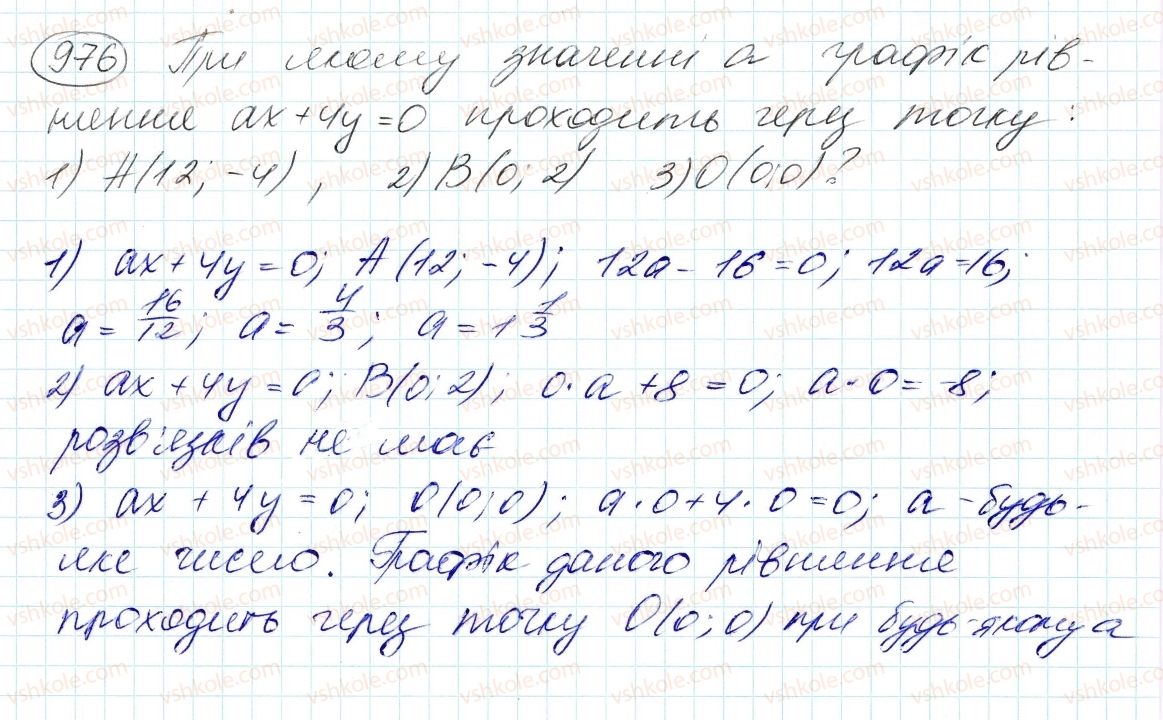 976 При якому значенні а графік рів-
няння ax + 4y = 0 проходить через точку:
1) A(12; -4), 2) B(0; 2) 3) O(0;0)?
1) ax + 4y = 0; A(12; -4); 12a - 16 = 0; 12a = 16;
a = 16/12; a = 4/3; a = 1 1/3
2) ax + 4y = 0; B(0; 2); 0·a + 8 = 0; a·0 = -8;
розв'язків не має
3) ax + 4y = 0; O(0; 0); a·0 + 4·0 = 0; a - будь-
яке число. Графік даного рівняння
проходить через точку O(0; 0) при будь-якому a
vshkole.com